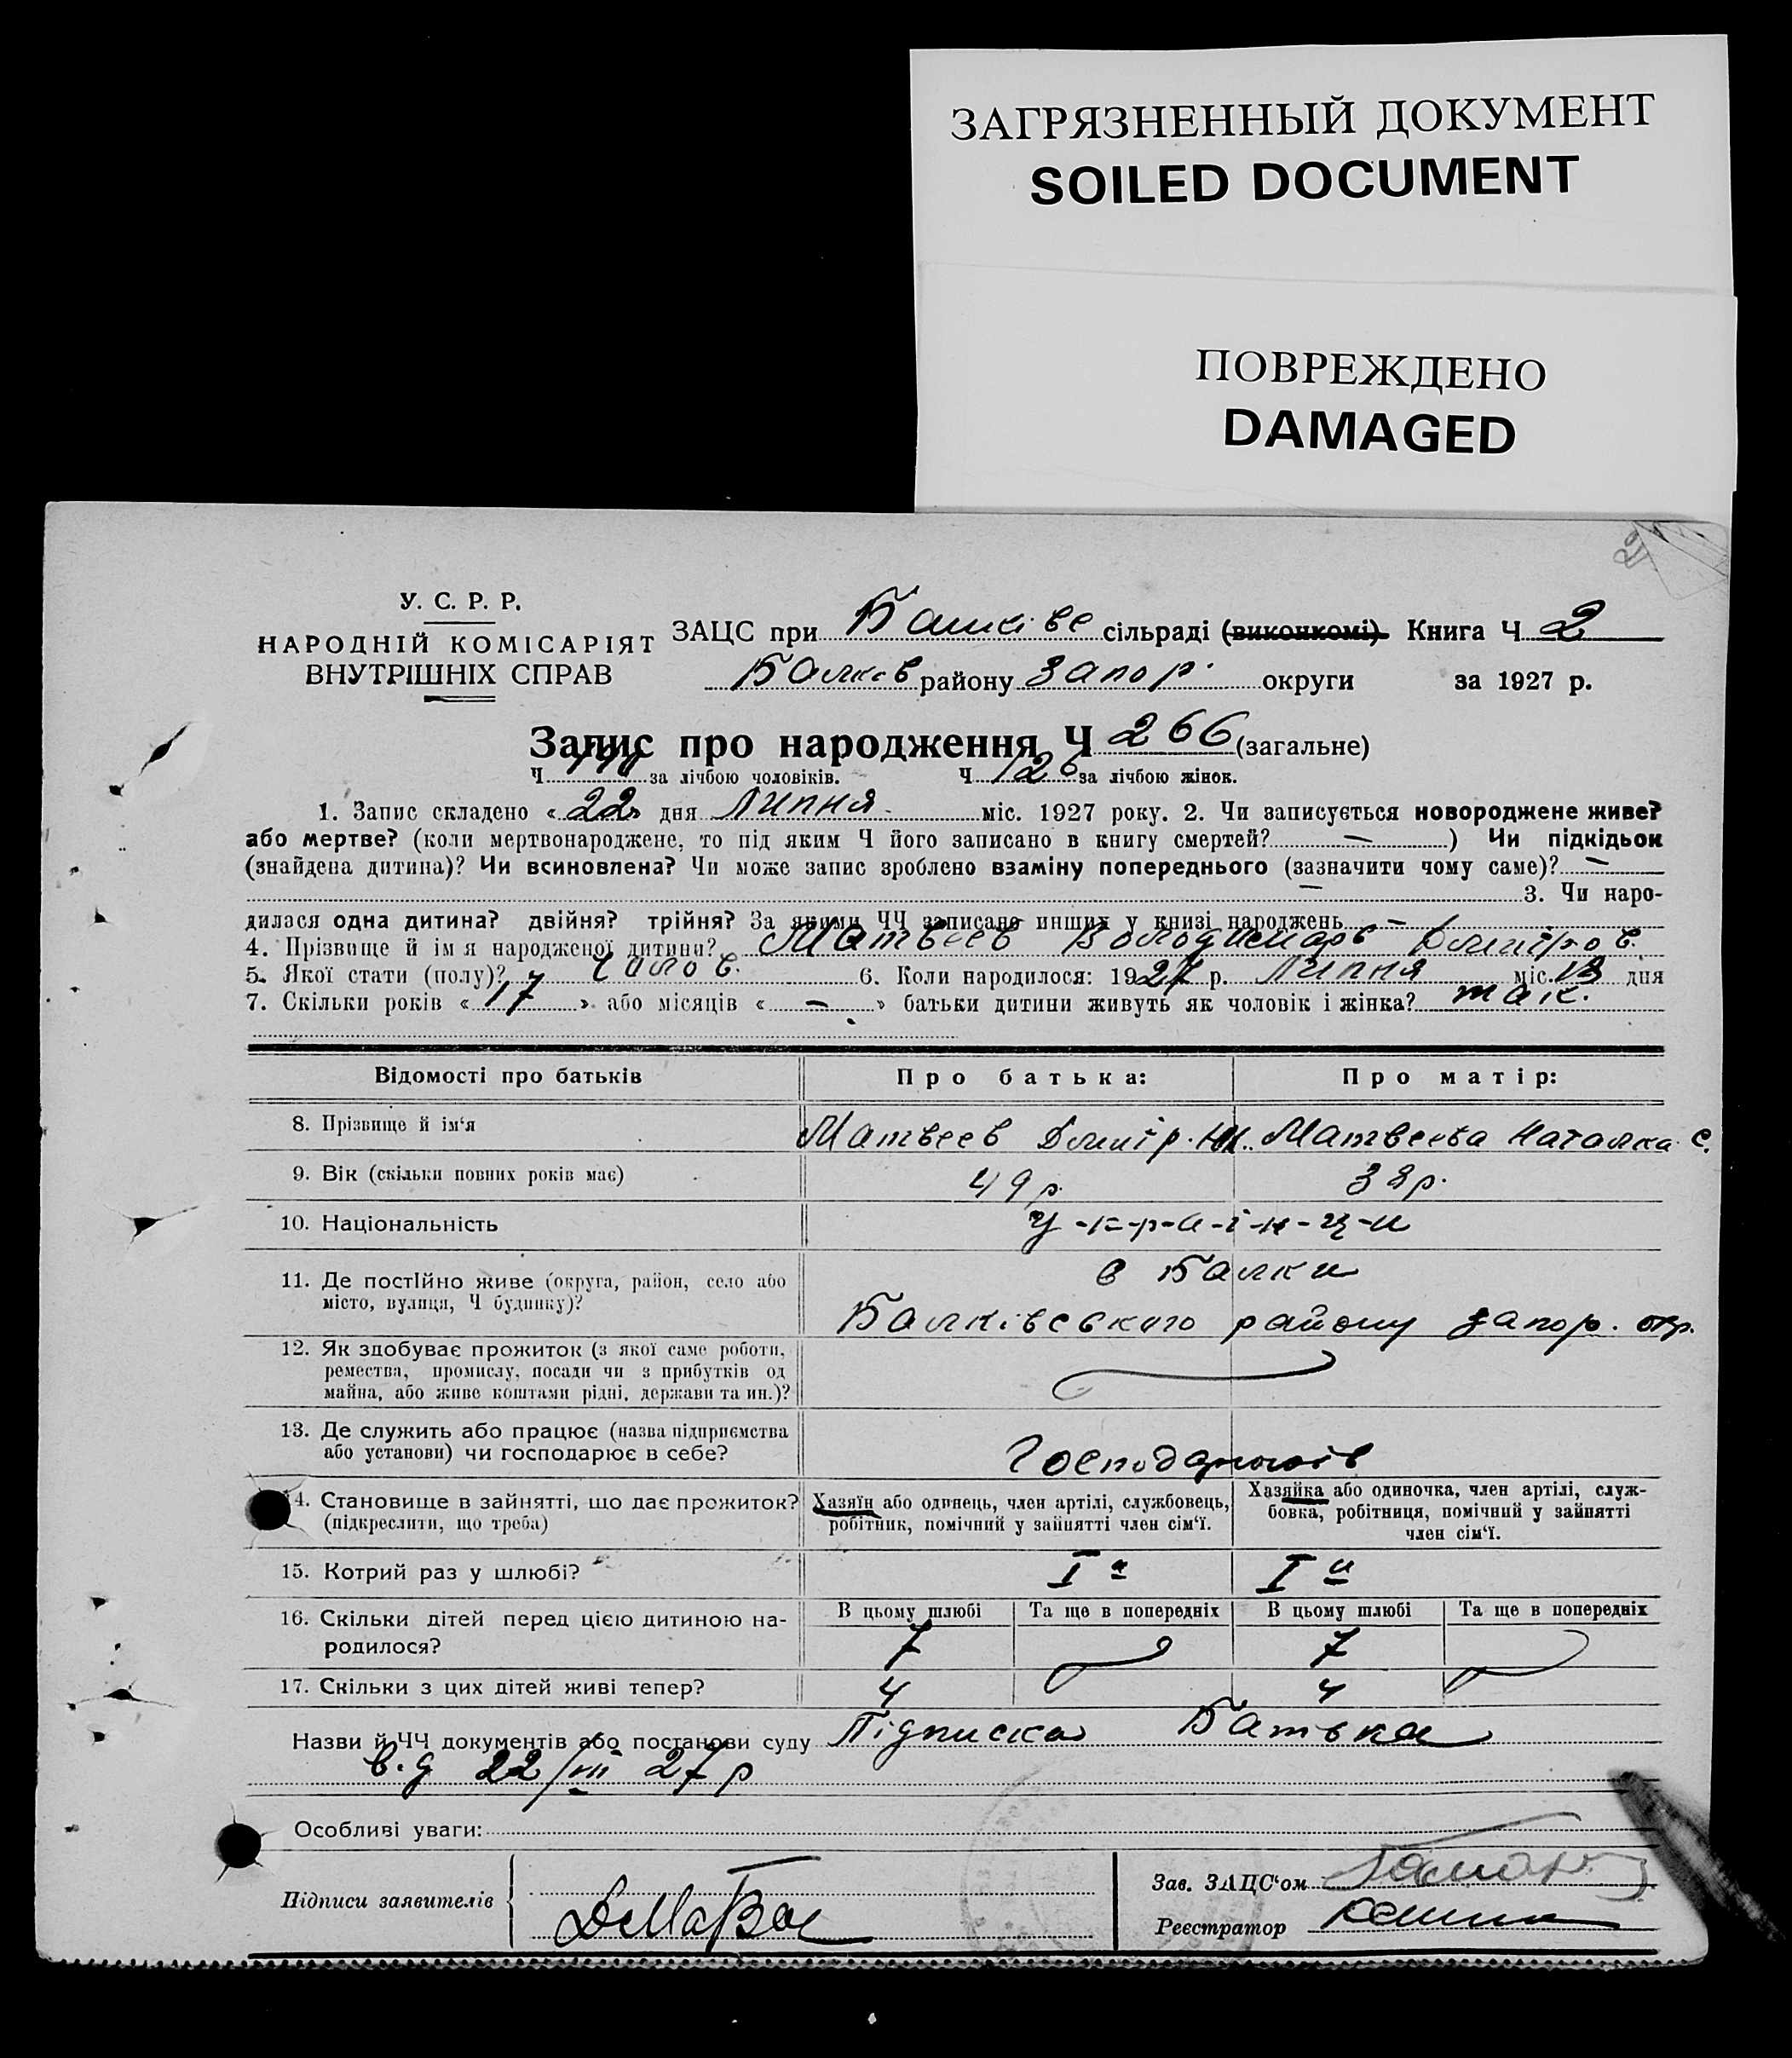 ЗАГРЯЗНЕННЫЙ ДОКУМЕНТ
SOILED DOCUMENT
ПОВРЕЖДЕНО
DAMAGED
У. С. Р. Р.
НАРОДНІЙ КОМІСАРІЯТ
ВНУТРІШНІХ СПРАВ
ЗАЦС при Балківс сільраді (виконкомі). Книга Ч 2
Балків району Запор. округи за 1927 р.
Запис про народження Ч 266 (загальне)
Ч за лічбою чоловіків. Ч 126 за лічбою жінок.
1. Запис складено « 22 » дня Липня міс. 1927 року. 2. Чи записується новороджене живе?
або мертве? (коли мертвонароджене, то під яким Ч його записано в книгу смертей? — ) Чи підкідьок
(знайдена дитина)? Чи всиновлена? Чи може запис зроблено взаміну попереднього (зазначити чому саме)? —
— 3. Чи наро-
дилася одна дитина? двійня? трійня? За якими ЧЧ записано инших у книзі народжень —
4. Прізвище й ім я народженої дитини? Матвеев Володимарь Дмитров.
5. Якої стати (полу)? Чолов. 6. Коли народилося: 1927 р. Липня міс. 13 дня
7. Скільки років « 17 » або місяців « — » батьки дитини живуть як чоловік і жінка? так.
Відомості про батьків Про батька: Про матір:
8. Прізвище й ім'я Матвеев Дмитр. Матвеева Наталка С.
9. Вік (скільки повних років має) 49 р. 38 р.
10. Національність У-к-р-а-ї-н-ц-и
11. Де постійно живе (округа, район, село або
місто, вулиця, Ч будинку)?
в Балки
Балківського району Запор. окр.
12. Як здобуває прожиток (з якої саме роботи,
ремества, промислу, посади чи з прибутків од
майна, або живе коштами рідні, держави та ин.)?
13. Де служить або працює (назва підприємства
або установи) чи господарює в себе?
14. Становище в зайнятті, що дає прожиток?
(підкреслити, що треба)
Хазяїн або одинець, член артілі, службовець,
робітник, помічний у зайнятті член сім'ї.
Хазяйка або одиночка, член артілі, служ-
бовка, робітниця, помічний у зайнятті
член сім'ї.
15. Котрий раз у шлюбі? І й І й
16. Скільки дітей перед цією дитиною на-
родилося?
В цьому шлюбі Та ще в попередніх В цьому шлюбі Та ще в попередніх
7 7
17. Скільки з цих дітей живі тепер? 4 4
Назви й ЧЧ документів або постанови суду Підписка Батька
в.д 22/VII 27 р
Особливі уваги:
Підписи заявителів
Зав. ЗАЦС'ом
Реєстратор